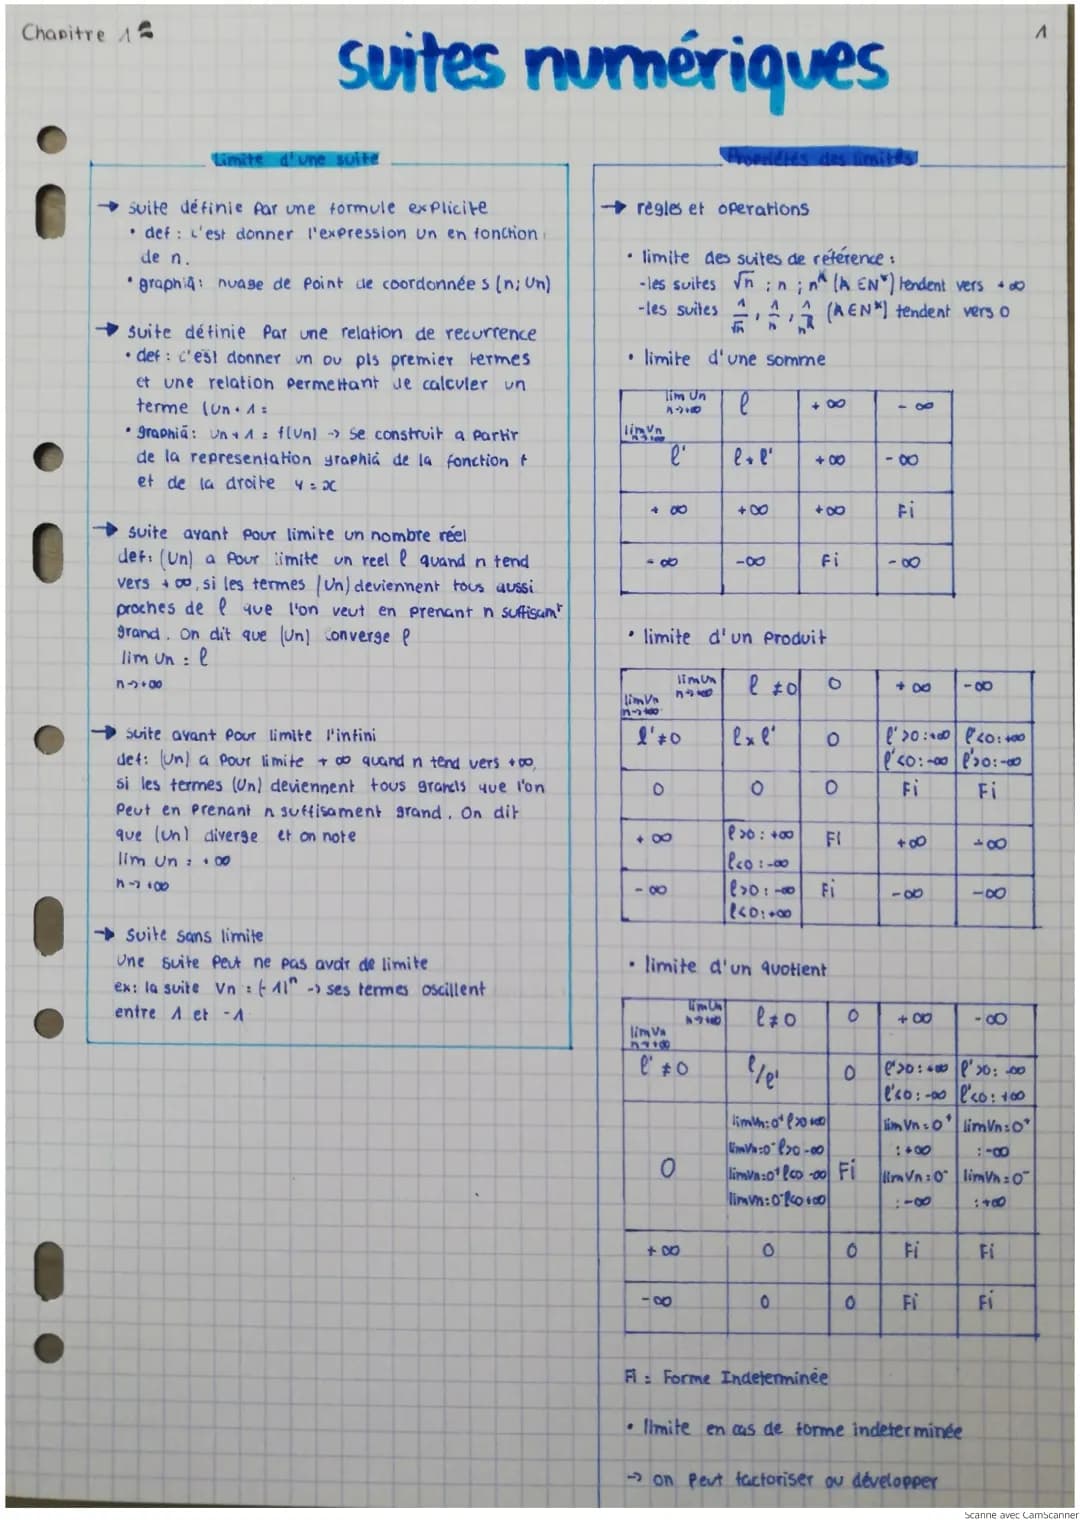 Chapitre 1 :
1
suites numériques
Limite d'une suite
→ suite définie par une formule explicite
• def : c'est donner l'expression Un en fonction
de n.
• graphiq: nuage de point de coordonnées (n; Un)
→ suite définie par une relation de recurrence
• def : c'est donner un ou pls premier termes
et une relation permettant de calculer un
terme (Un+1 =
• graphiq: Un+1 = f(Un) → se construit a partir
de la representation graphiq de la fonction f
et de la droite y = x
→ suite ayant pour limite un nombre réel
def: (Un) a pour limite un reel l quand n tend
vers +∞, si les termes (Un) deviennent tous aussi
proches de l que l'on veut en prenant n suffisamt
grand. On dit que (Un) converge l
lim Un = l
n→+∞
→ suite ayant pour limite l'infini
def: (Un) a pour limite +∞ quand n tend vers +∞,
si les termes (Un) deviennent tous grands que l'on
peut en prenant n suffisament grand. On dit
que (Un) diverge et on note
lim Un = +∞
n→+∞
→ suite sans limite
Une suite peut ne pas avoir de limite
ex: la suite Vn = (-1)ⁿ → ses termes oscillent
entre 1 et -1
Propriétés des limites
→ règles et operations
• limite des suites de référence :
-les suites √n ; n ; n^k (k ∈ N*) tendent vers +∞
-les suites 1/√n, 1/n, 1/n^k (k ∈ N*) tendent vers 0
• limite d'une somme
lim Un n→+∞ l +∞ -∞
lim Vn n→+∞
l' l+l' +∞ -∞
+∞ +∞ +∞ Fi
-∞ -∞ Fi -∞
• limite d'un produit
lim Un n→+∞ l ≠0 0 +∞ -∞
lim Vn n→+∞
l'≠0 l×l' 0 l'>0:+∞ l'<0:+∞
l'<0:-∞ l'>0:-∞
0 0 0 Fi Fi
+∞ l>0 : +∞ FI +∞ +∞
l<0 : -∞
-∞ l>0 : -∞ Fi -∞ -∞
l<0:+∞
• limite d'un quotient
lim Un n→+∞ l≠0 0 +∞ -∞
lim Vn n→+∞
l' ≠0 l/l' 0 l'>0:+∞ l'>0: -∞
l'<0:-∞ l'<0: +∞
limVn=0⁺ l>0 +∞ limVn=0⁺ limVn=0⁺
limVn=0⁻ l>0 -∞ :+∞ :-∞
0 limVn=0⁺ l<0 -∞ Fi limVn=0⁻ limVn=0⁻
limVn=0⁻ l<0 +∞ :-∞ :+∞
+∞ 0 0 Fi Fi
-∞ 0 0 Fi Fi
FI : Forme Indeterminée
• limite en cas de forme indeterminée
→ on peut factoriser ou développer
Scanné avec CamScanner